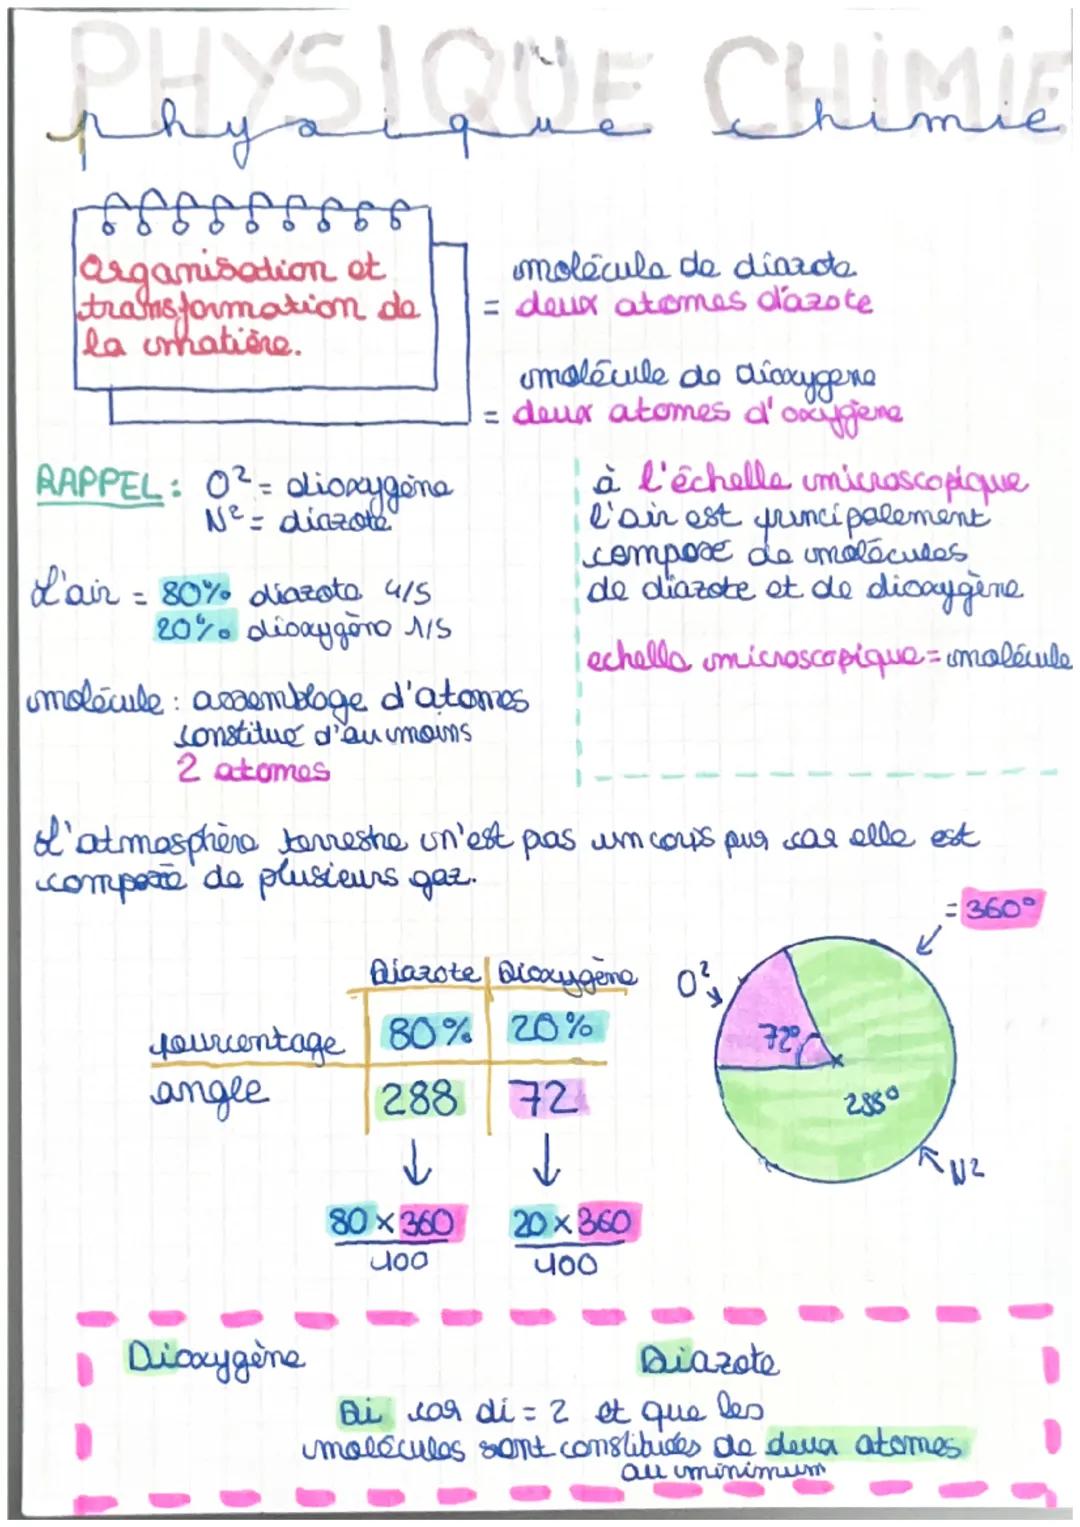 PHYSIQUE CHIMIE
physique chimie
Organisation et
transformation de
la matière.
molécule de diazote
= deux atomes d'azote
molécule de dioxygene
= deux atomes d'oxygène
RAPPEL : O² = dioxygène
N² = diazote
L'air = 80% diazote 4/5
20% dioxygène 1/5
molécule : assemblage d'atomes
constitué d'au moins
2 atomes
à l'échelle microscopique
l'air est principalement
composé de molécules
de diazote et de dioxygène
echelle microscopique = molécule
L'atmosphère terrestre n'est pas un corps pur car elle est
composée de plusieurs gaz.
Diazote Dioxygène
pourcentage 80% 20%
angle 288 72
80 x 360
100
20 x 360
100
= 360°
O²
72°
288°
N²
Dioxygène Diazote
Di car di = 2 et que les
molécules sont constituées de deux atomes
au minimum